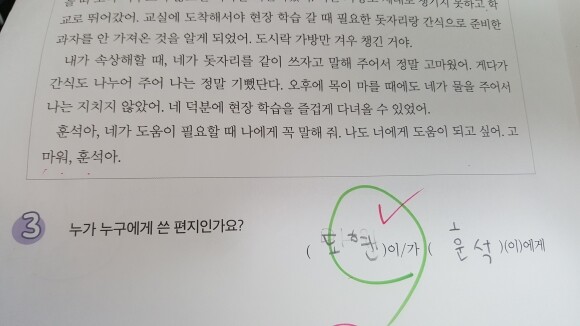 교로 뛰어갔어. 교실에 도착해서야 현장 학습 갈 때 필요한 돗자리랑 간식으로 준비한
과자를 안 가져온 것을 알게 되었어. 도시락 가방만 겨우 챙긴 거야.
내가 속상해할 때, 네가 돗자리를 같이 쓰자고 말해 주어서 정말 고마웠어. 게다가
간식도 나누어 주어 나는 정말 기뻤단다. 오후에 목이 마를 때에도 네가 물을 주어서
나는 지치지 않았어. 네 덕분에 현장 학습을 즐겁게 다녀올 수 있었어.
훈석아, 네가 도움이 필요할 때 나에게 꼭 말해 줘. 나도 너에게 도움이 되고 싶어. 고
마워, 훈석아.
3 누가 누구에게 쓴 편지인가요?
( )이/가 ( 훈석 )(이)에게